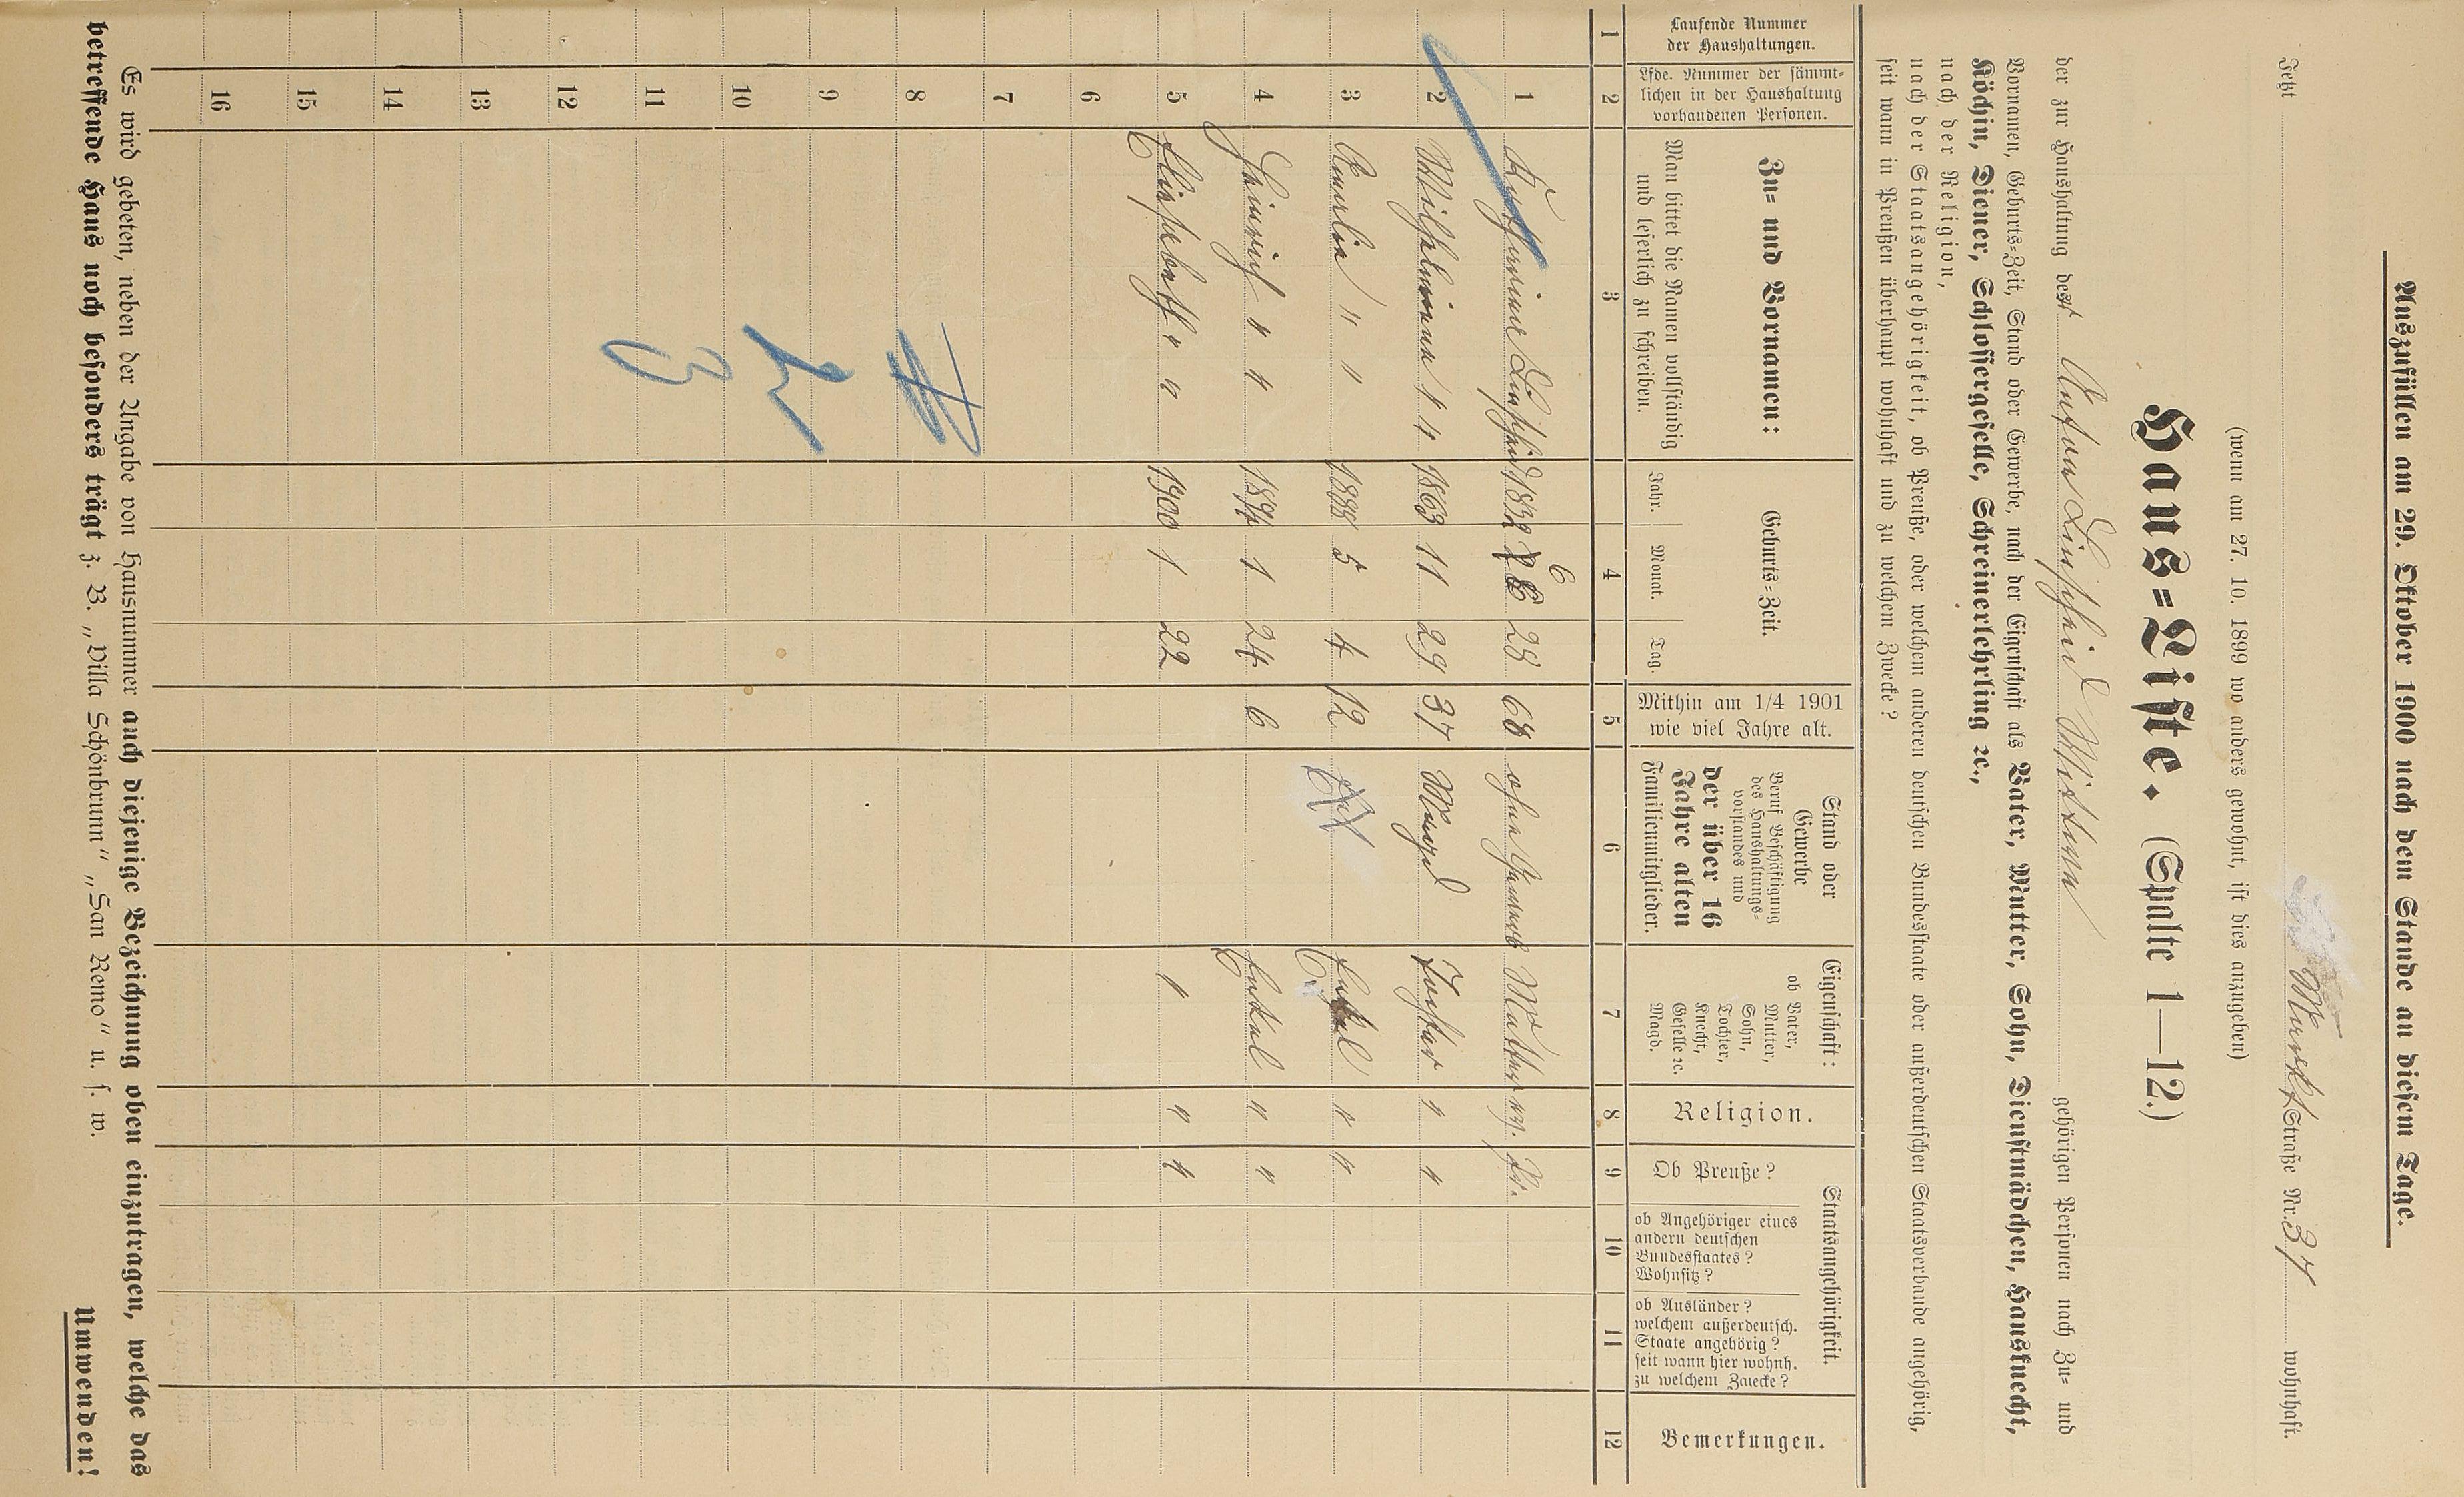 Auszufüllen am 29. Oktober 1900 nach dem Stande an diesem Tage.
Jetzt Markt Straße Nr. 37 wohnhaft.
(wenn am 27. 10. 1899 wo anders gewohnt, ist dies anzugeben)
Haus=Liste. (Spalte 1—12.)
der zur Haushaltung des Anton Witwe gehörigen Personen nach Zu= und
Vornamen, Geburts=Zeit, Stand oder Gewerbe, nach der Eigenschaft als Vater, Mutter, Sohn, Dienstmädchen, Hausknecht,
Köchin, Diener, Schlossergeselle, Schreinerlehrling ꝛc.,
nach der Religion,
nach der Staatsangehörigkeit, ob Preuße, oder welchem anderen deutschen Bundesstaate oder außerdeutschen Staatsverbande angehörig,
seit wann in Preußen überhaupt wohnhaft und zu welchem Zwecke?
Laufende Nummer
der Haushaltungen.
Lfde. Nummer der sämmt=
lichen in der Haushaltung
vorhandenen Personen.
Zu= und Vornamen:
Man bittet die Namen vollständig
und leserlich zu schreiben.
Geburts=Zeit.
Jahr. Monat. Tag.
Mithin am 1/4 1901
wie viel Jahre alt.
Stand oder
Gewerbe
Beruf Beschäftigung
des Haushaltungs=
vorstandes und
der über 16
Jahre alten
Familienmitglieder.
Eigenschaft:
ob Vater,
Mutter,
Sohn,
Tochter,
Knecht,
Geselle ꝛc.
Magd.
Religion.
Staatsangehörigkeit.
Ob Preuße?
ob Angehöriger eines
andern deutschen
Bundesstaates?
Wohnsitz?
ob Ausländer?
welchem außerdeutsch.
Staate angehörig?
seit wann hier wohnh.
zu welchem Zwecke?
Bemerkungen.
1 2 3 4 5 6 7 8 9 10 11 12
1 1832 6 28 68 ohne Gewerbe Mutter ev. Pr.
2 Wilhelmine " " 1863 11 29 37 Magd Tochter " "
3 Amalie " " 1888 5 4 12 Enkel " "
4 Heinrich " " 1894 1 24 6 Enkel " "
5 Elisabeth " " 1900 1 22 " " "
6
7
8
9
10
11
12
13
14
15
16
Es wird gebeten, neben der Angabe von Hausnummer auch diejenige Bezeichnung oben einzutragen, welche das
betreffende Haus noch besonders trägt z. B. „Villa Schönbrunn“ „San Remo“ u. s. w.
Umwenden!